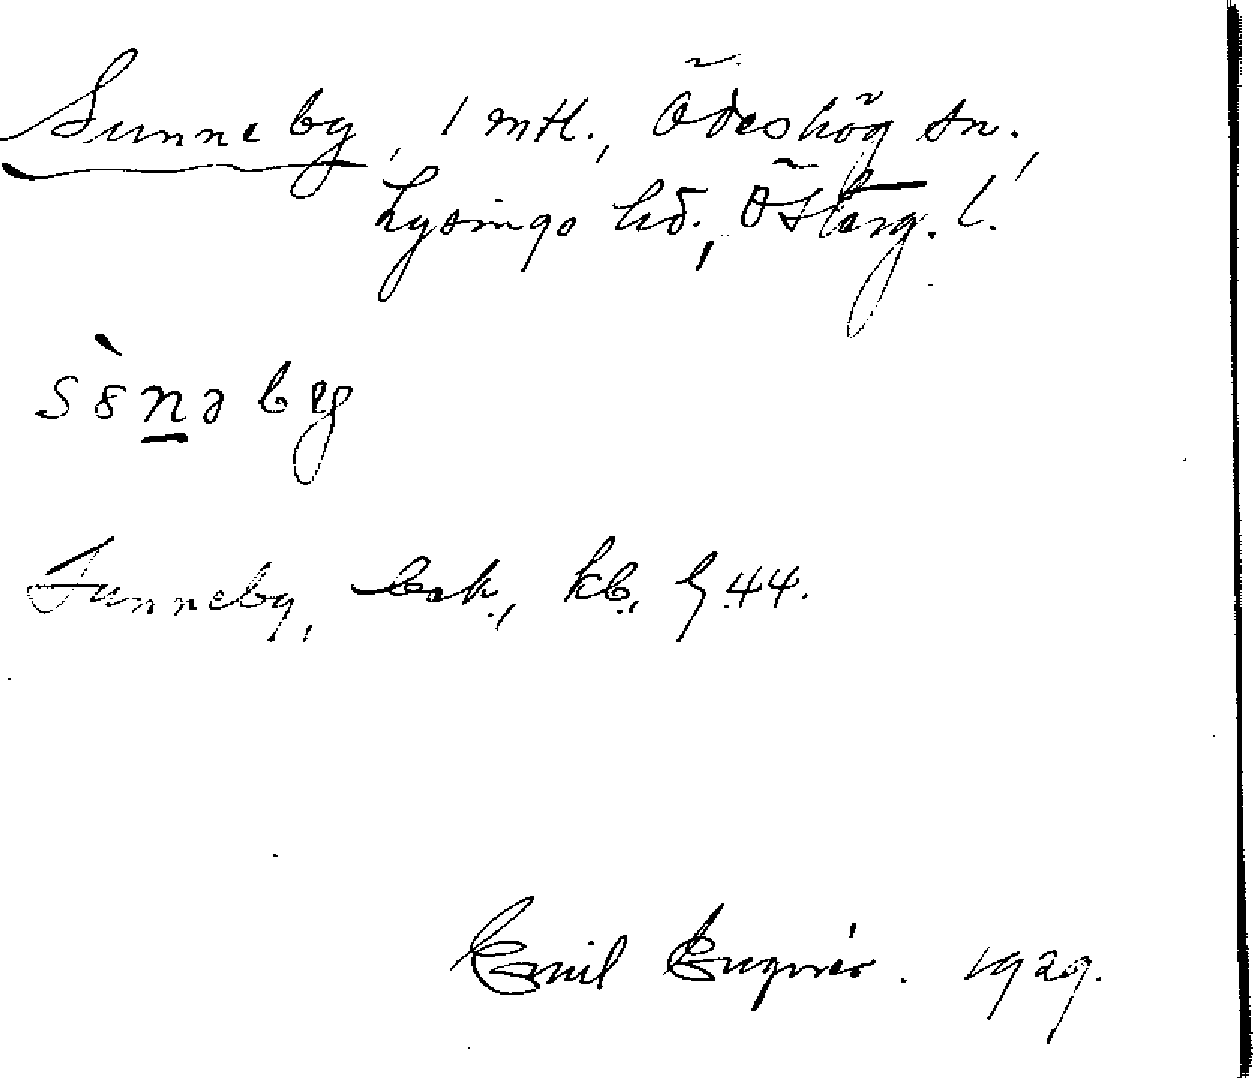 Sunneby, 1 mtl., Ödeshög sn.,
Lysings hd., Österg. l.
sònəby
Sunneby, Eck., kb., G 44.
Emil Engnér. 1929.